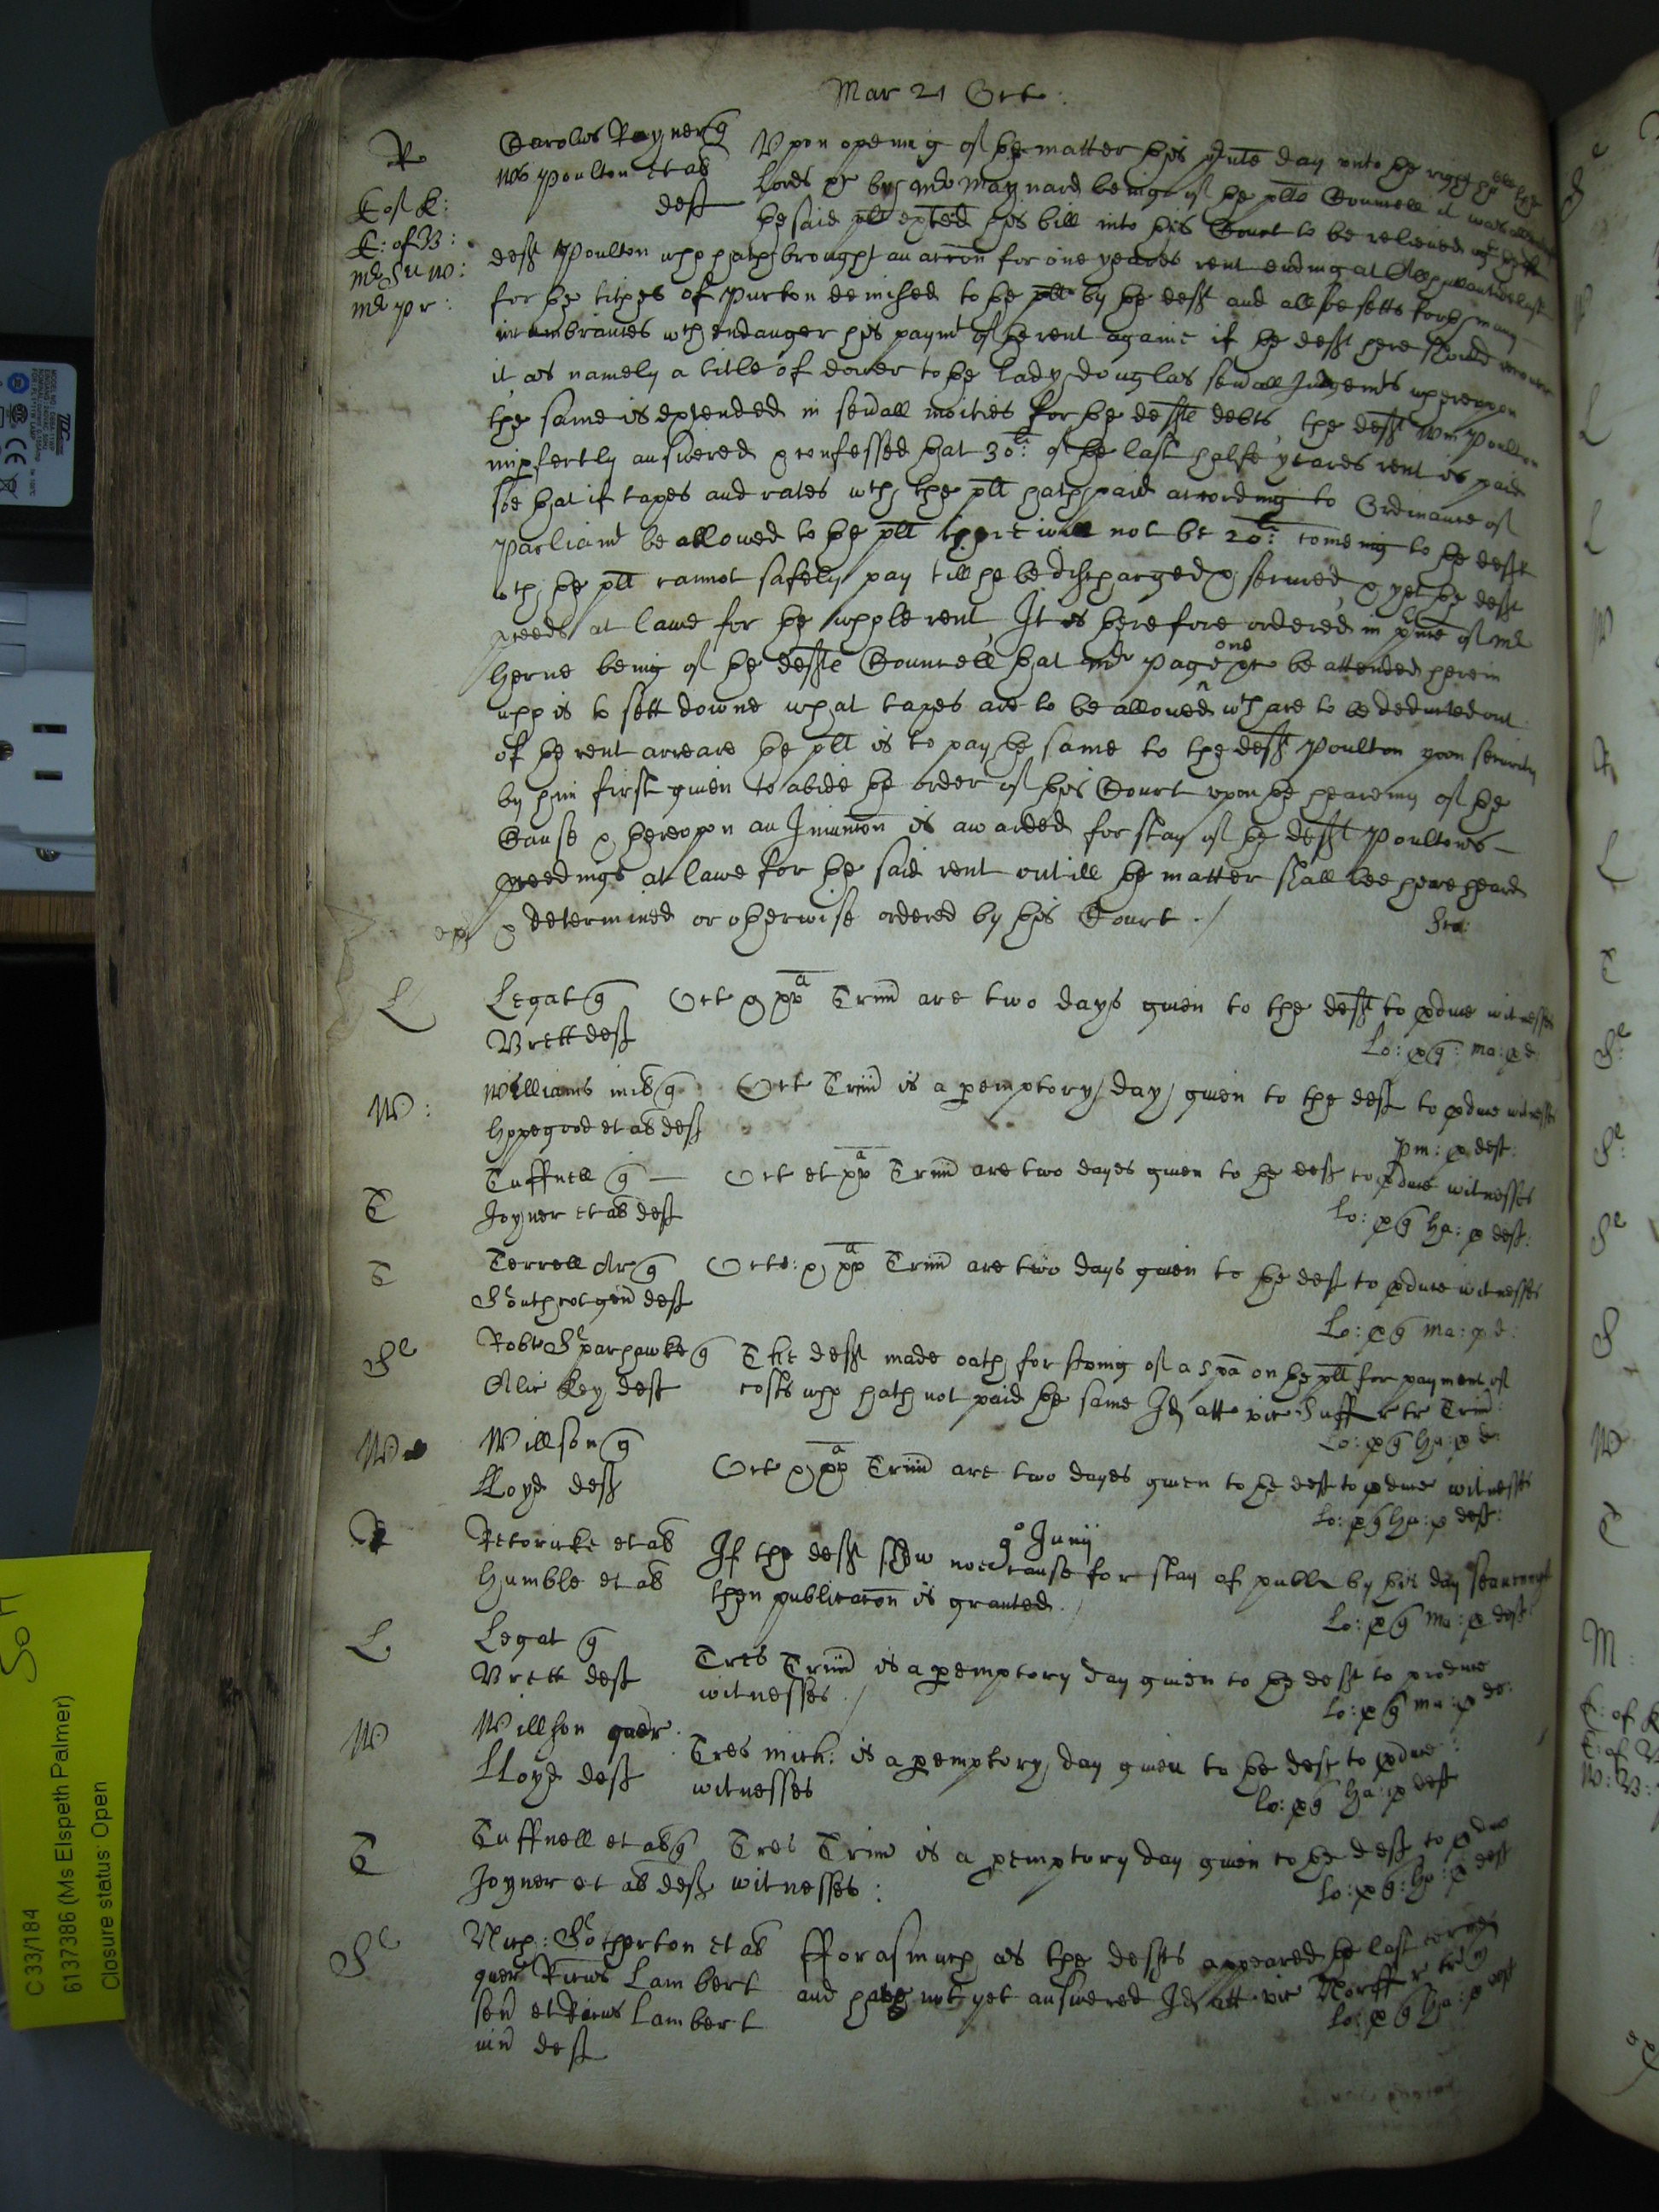 Mar 21 Oct:
R
E of K:
E: of B:
Carolus Rayner q
Poulton et al
deft
Upon opening of the matter this p̲nte day unto the right
Lords by Mr Maynard being of the plts Councell it was
the said plt exhted his bill into this Court to be relieved
deft Poulton who hath brought an accon for one yeares rent ending at
for the tithes of Purton demised to the plt by the deft and allsoe setts forth many
incumbrances wch endanger his paymt of the rent againe if the deft here should recover
it as namely a title of dower to the Lady Douglas sevall Judgemts whereupon
the same is extended in sevall moities for the defts debts, the deft Wm Poulton
impfectly answered & confessed that 30li: of the last halfe yeares rent is paid
soe that if taxes and rates wch the plt hath paid according to Ordinance of
Parliamt be allowed to the plt there will not be 20li: comeing to the deft
wch the plt cannot safely pay till he be discharged & secured, & yet the deft
pceeds at lawe for the whole rent, It is therefore ordered in p̲nce of Mr
Herne being of the defts Councell that Mr Page one be attended herein
who is to sett downe what taxes are to be allowed wch are to be deducted out
of the rent arreare the plt is to pay the same to the deft Poulton upon security
by him first given to abide the order of this Court upon the heareing of the
Cause & thereupon an Iniunccon is awarded for stay of the deft Poultons
pceedings at lawe for the said rent untill the matter shall bee here heard
ex & determined or otherwise ordered by this Court ./
L
Legat q
Urett deft
Oct & ppa Trin are two days given to the deft to pduce witnesses
Lo: p q: ma: p d:
W:
Williams q
Hopegood et al deft
Oct Trin is a pemptory day given to the deft to pduce witnesses
pm: p deft:
T
Tuffnell q
Joyner et al deft
Oct et ppa Trin are two dayes given to the deft to pduce witnesses
Lo: p q ha: p deft:
T
Terrell Ar q
Southcot gen deft
Octo: & ppa Trin are two days given to the deft to pduce witnesses
Lo: p q ma: p d:
S
Robte Sparhawke q
Alic Key deft
The deft made oath for serving of a spa on the plt for payment of
costs who hath not paid the same Id att vic Suff r tr Trin:
Lo: p q ha: p d:
W
Willson q
Lloyd deft
Oct & ppa Trin are two dayes given to the deft to pduce witnesses
Lo: p q ha: p deft:
R
Retoricke et al
Humble et al
9o Junij
If the deft shew noe cause for stay of publ by this day
then publicacon is granted ./
Lo: p q ma: p deft
L
Legat q
Urett deft
Tres Trin is a pemptory day given to the deft to produce
witnesses ./
Lo: p q ma: p de:
W
Willson quer
Lloyd deft
Tres Mich: is a pemptory day given to the deft to pduce
witnesses
Lo: p q ha: p deft
T
Tuffnell et al q
Joyner et al deft
Tres Trin is a pemptory day given to the deft to pduce
witnesses:
Lo: p q: ha: p deft
S
Nich: Sotherton et al
quer Ricus Lambert
sen et Ricus Lambert
iun deft
Fforasmuch as the defts appeared the last terme
and have not yet answered Id att vic Norff r tr
Lo: p q ha: p deft
C 33/184
6137386 (Ms Elspeth Palmer)
Closure status: Open